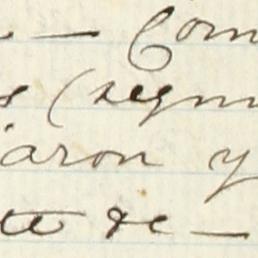 — Com
s (segun
iaron y
tte &c —